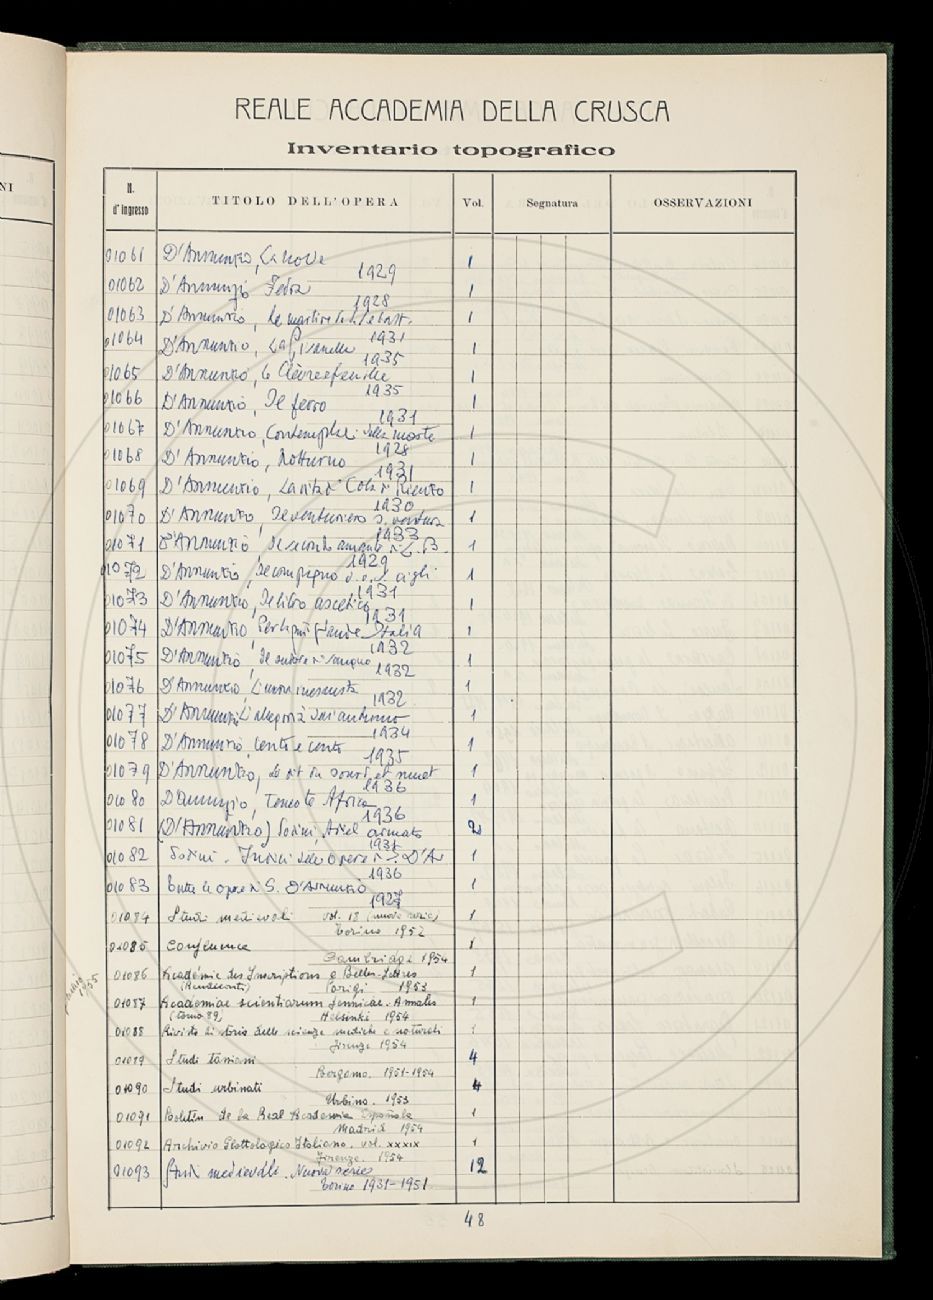 NI
REALE ACCADEMIA DELLA CRUSCA
Inventario topografico
N. d'ingresso TITOLO DELL'OPERA Vol. Segnatura OSSERVAZIONI
01061 D'Annunzio, La nave 1
1929
01062 D'Annunzio Fedra 1
1928
01063 D'Annunzio, Le martire 1
1931
01064 D'Annunzio, La Pisanelle 1
1935
01065 D'Annunzio, Le Chèvrefeuille 1
1935
01066 D'Annunzio, Il ferro 1
1931
01067 D'Annunzio, Contemplaz. della morte 1
1928
01068 D'Annunzio, Notturno 1
1931
01069 D'Annunzio, La vita di Cola di Rienzo 1
1930
01070 D'Annunzio, Il venturiero s. ventura 1
1933
01071 D'Annunzio Il secondo amante di L. B. 1
1929
01072 D'Annunzio, Il compagno d. o. s. cigli 1
1931
01073 D'Annunzio, Il libro ascetico 1
1931
01074 D'Annunzio Per la più grande Italia 1
1932
01075 D'Annunzio, Il sudore di sangue 1
1932
01076 D'Annunzio, L'urna inesausta 1
1932
01077 D'Annunzio L'allegoria dell'autunno 1
1934
01078 D'Annunzio, Cento e cento 1
1935
01079 D'Annunzio, Le dit du sourd et muet 1
1936
01080 D'Annunzio, Teneo te Africa 1
1936
01081 (D'Annunzio) Sodini, Ariel armato 2
01082 Sodini. Indici delle Opere di G. D'An 1
1936
01083 Tutte le opere di G. D'Annunzio 1
1927
01084 Studi medievali vol. 18 (nuova serie) 1
Torino 1952
01085 Confluence 1
Cambridge 1954
01086 Académie des Inscriptions e Belles-Lettres 1
(Rendiconti) Parigi 1953
01087 Academiae scientiarum fennicae. Annales 1
(tomo 89) Helsinki 1954
01088 Rivista di storia delle scienze mediche e naturali 1
Firenze 1954
01089 Studi tassiani 4
Bergamo. 1951-1954
01090 Studi urbinati 4
Urbino. 1953
01091 Boletin de la Real Academia Española 1
Madrid 1954
01092 Archivio Glottologico Italiano. vol. XXXIX 1
Firenze. 1954
01093 Studi medievali. Nuova series 12
Torino 1931-1951
1955
48